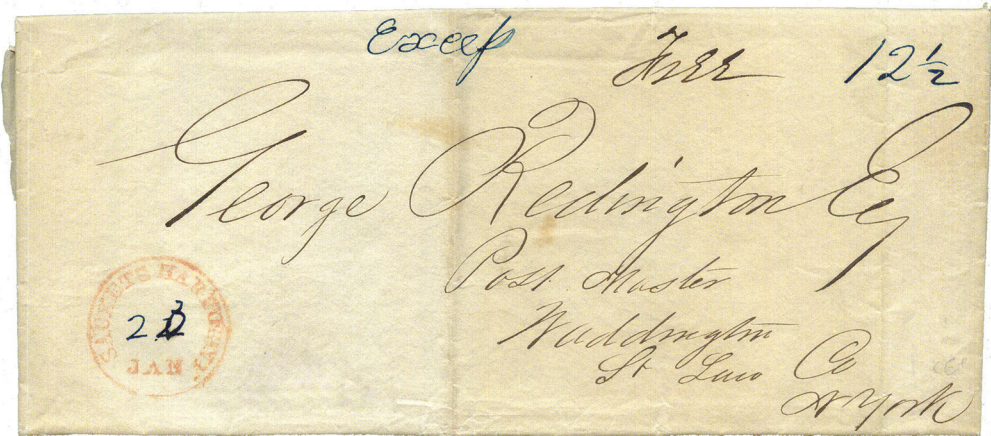 Excep Free 12½
George Redington Esq
Post Master
Waddington
St Law Co
N York
SACKETS HARBOR N.Y.
22
JAN